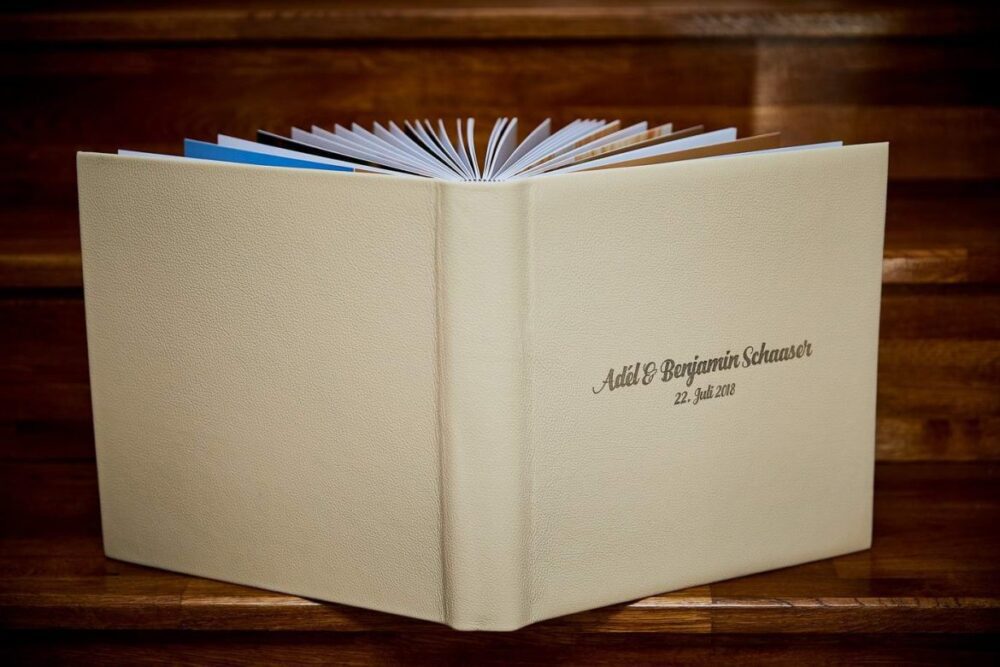 Adél & Benjamin Schaaser
22. Juli 2018